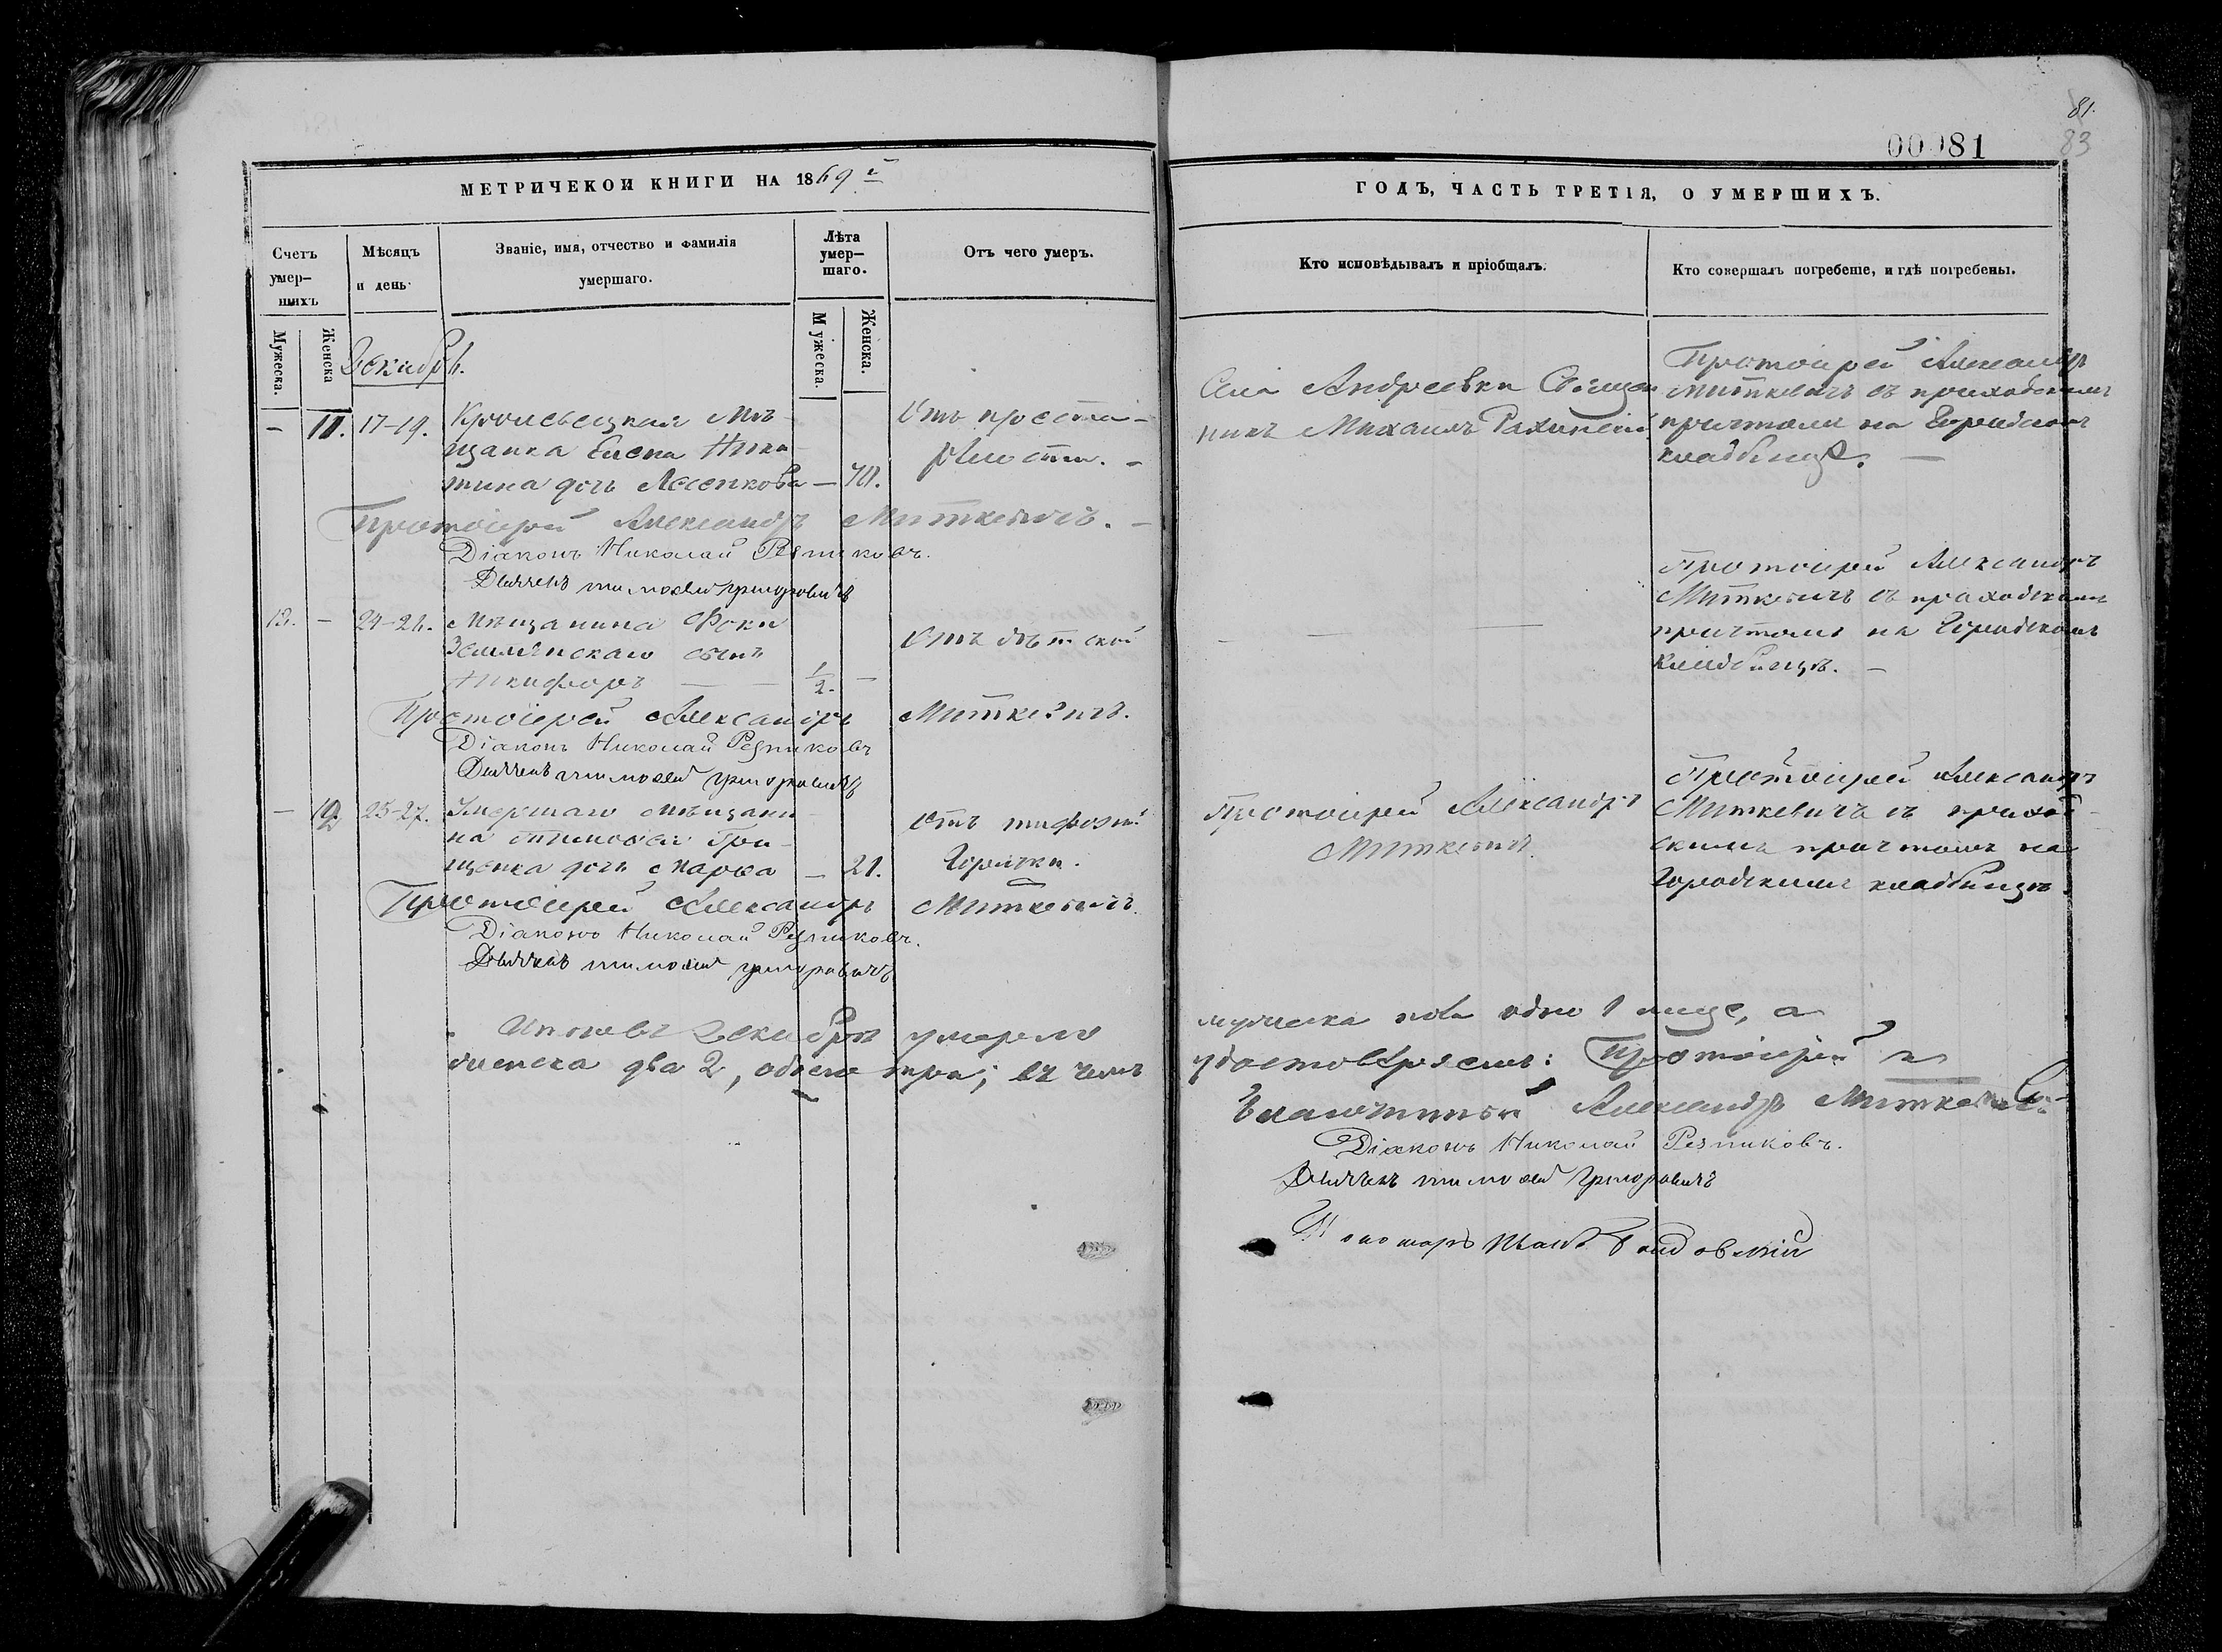 81.
83
00081
МЕТРИЧЕКОИ КНИГИ НА 1869 й
ГОДЪ, ЧАСТЬ ТРЕТІЯ, О УМЕРШИХЪ.
Счетъ умер-шихъ
Мужеска.
Женска
Мѣсяцъ и день.
Званіе, имя, отчество и фамилія
умершаго.
Лѣта умер-шаго.
Мужеска.
Женска.
Отъ чего умеръ.
Кто исповѣдывалъ и пріобщалъ.
Кто совершалъ погребеніе, и гдѣ погребены.
Декабрь.
— 11. 17-19. Кролевецкая Мѣ-
щанка Елена Ники-
тина дочь — 70.
Отъ
Села Андреевки Священ
никъ Михаилъ
Протоіерей Александръ
Миткевичъ съ приходскимъ
причтомъ на Городскомъ
кладбищѣ. —
Протоіерей Александръ Миткевичъ. —
Діаконъ Николай Резниковъ.
Дьячекъ Тимоѳей Григоровичъ
12. — 24-26. Мѣщанина Фоки
Землянскаго сынъ
Никифоръ — — 1/2. —
Отъ дѣтской
— —
Протоіерей Александръ
Миткевичъ съ приходскимъ
причтомъ на Городскомъ
кладбищѣ. —
Протоіерей Александръ Миткевичъ.
Діаконъ Николай Резниковъ
Дьячекъ Тимоѳей Григоровичъ
— 12 25-27. Умершаго Мѣщани-
на Тимоѳея Гри-
щенка дочь Марѳа — 21.
Отъ тифозной
Горячки.
Протоіерей Александръ
Миткевичъ.
Протоіерей Александръ
Миткевичъ съ приход-
скимъ причтомъ на
Городскомъ кладбищѣ.
Протоіерей Александръ Миткевичъ.
Діаконъ Николай Резниковъ.
Дьячекъ Тимоѳей Григоровичъ
Итого въ Декабрѣ умерло
мужеска пола одно 1 лице, а
женска два 2, обоего три; въ чемъ
удостовѣряемъ: Протоіерей и
Благочинный Александръ Миткевичъ.
Діаконъ Николай Резниковъ.
Дьячекъ Тимоѳей Григоровичъ
Пономарь Иванъ